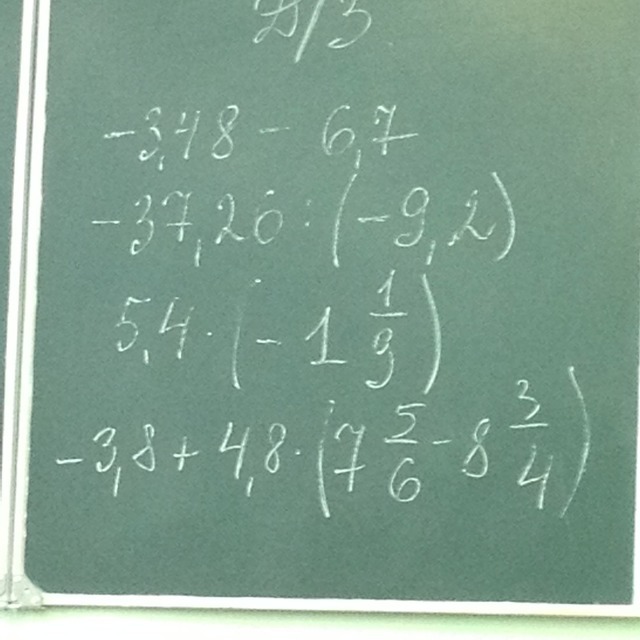 Д/З
-3,48 - 6,7
-37,26 : (-9,2)
5,4 · (-1 1/9)
-3,8 + 4,8 · (7 5/6 - 8 3/4)